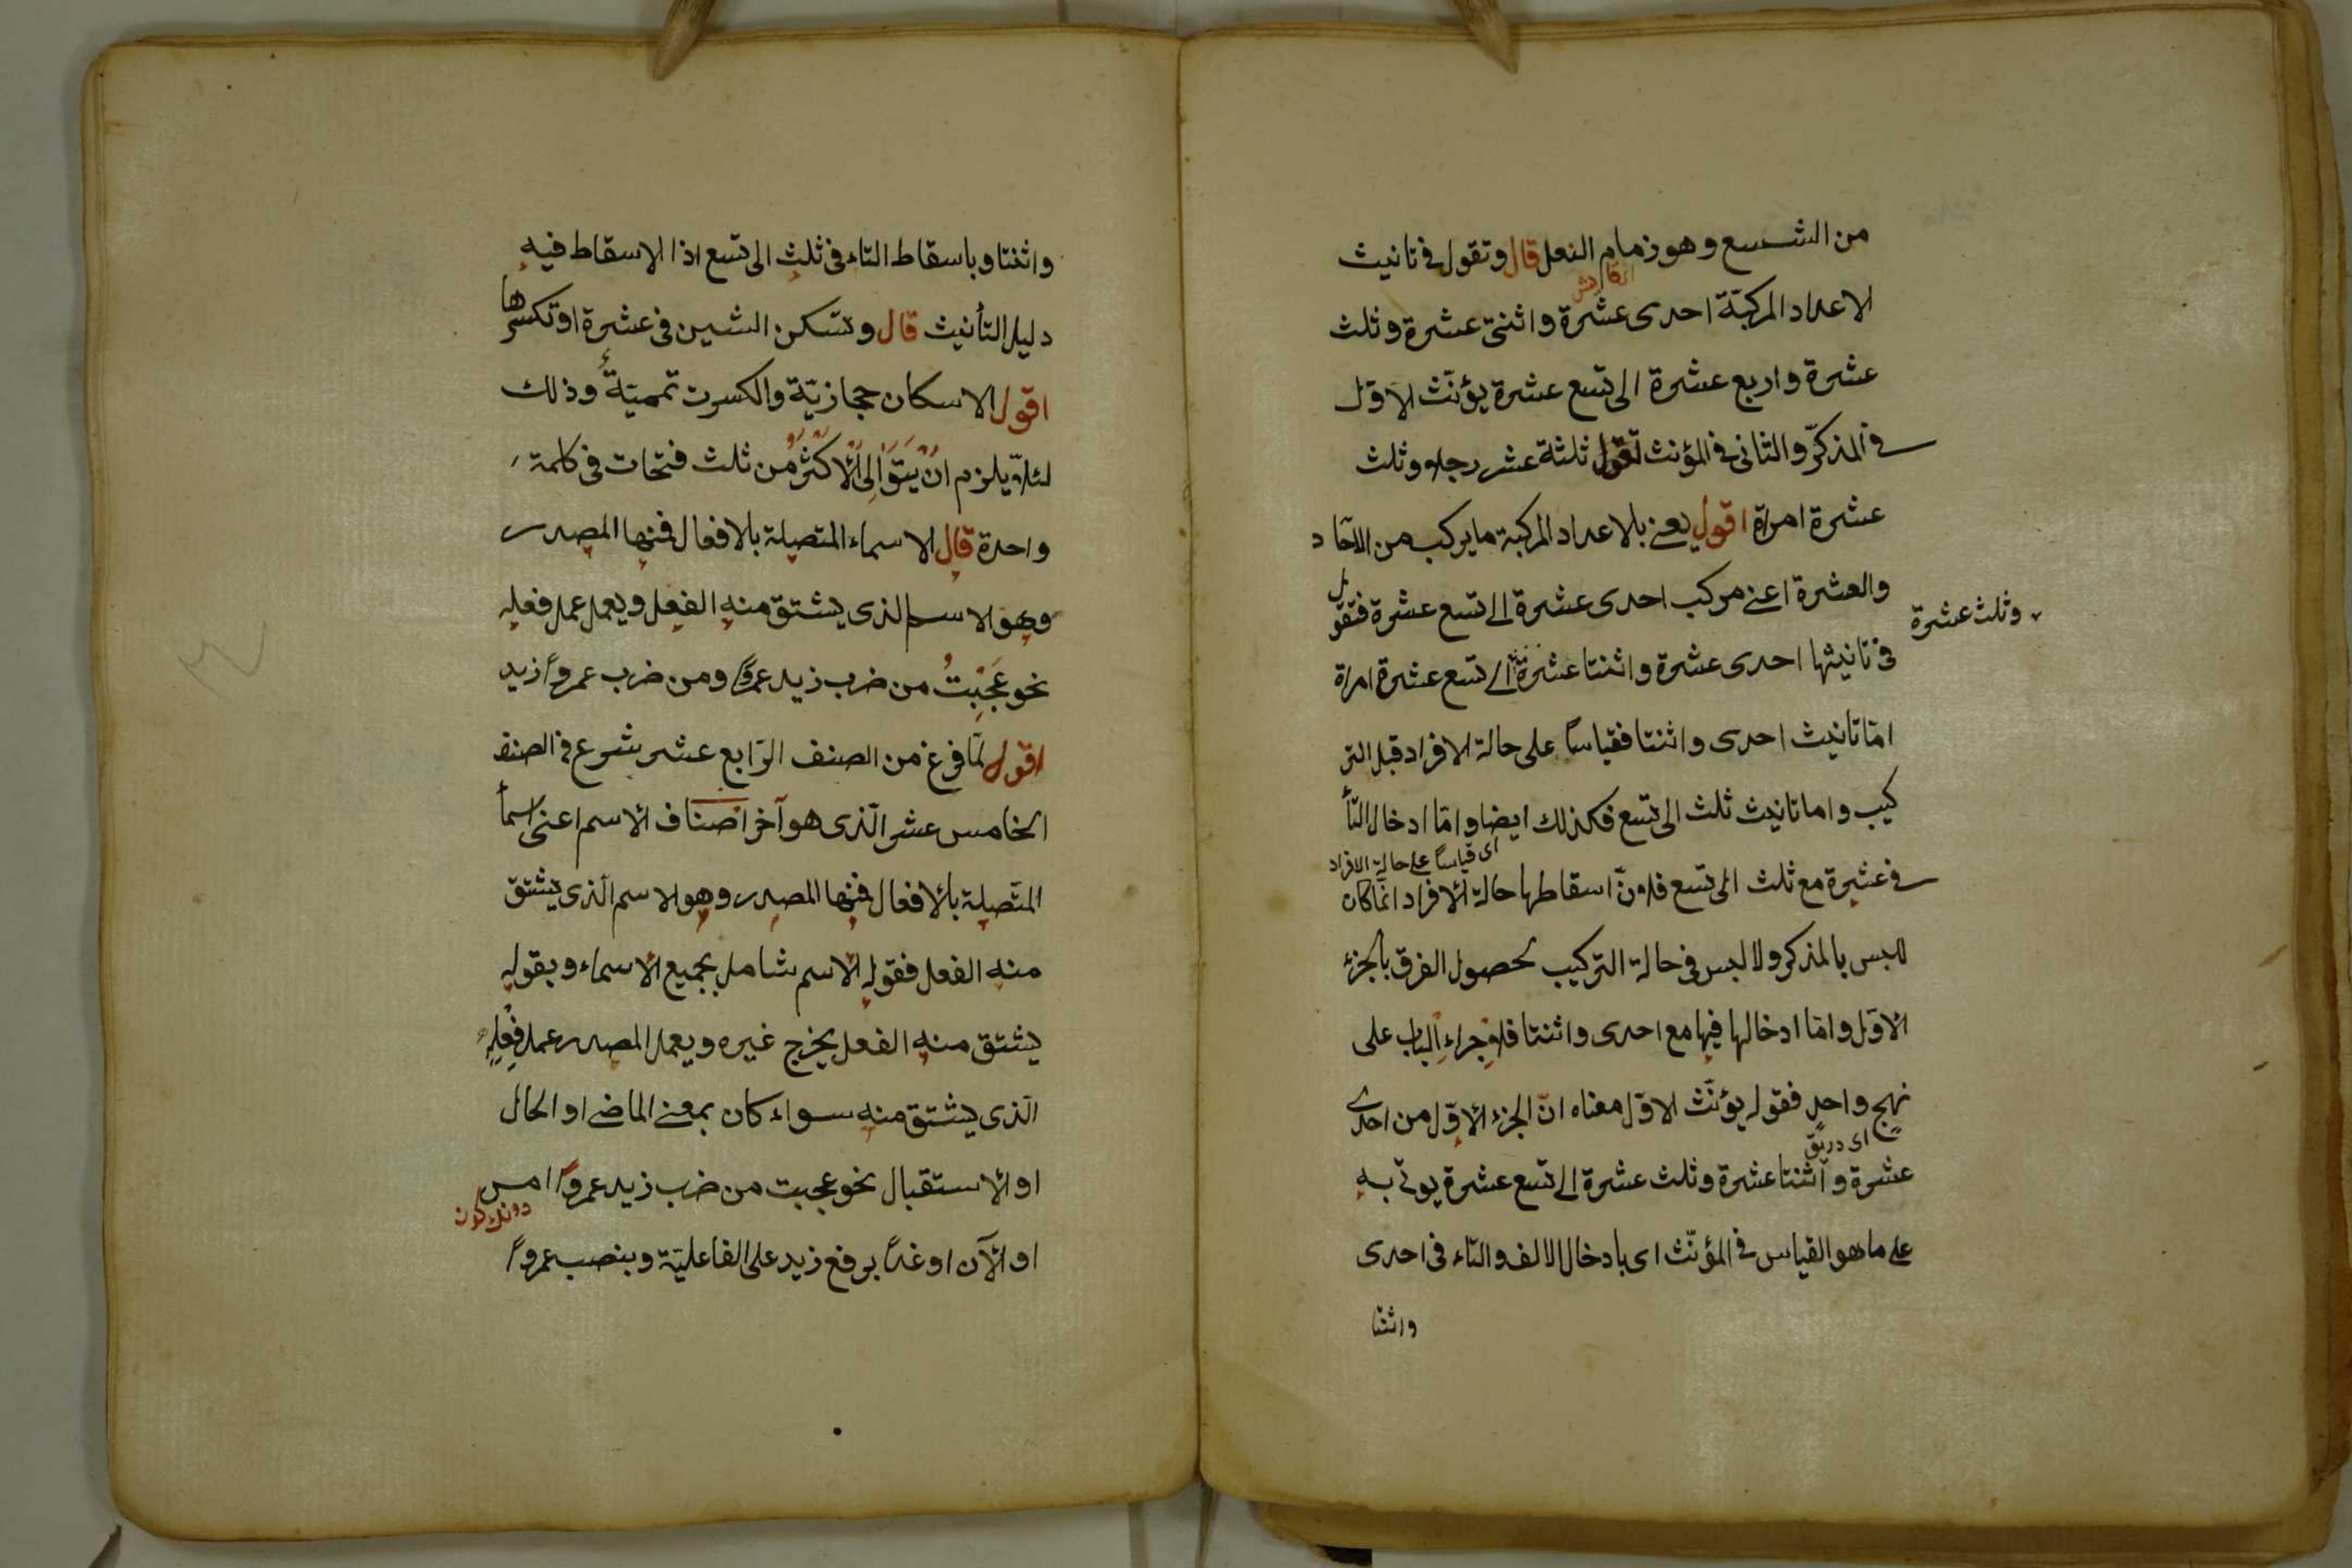 من الشسع وهو زمام النعل قال وتقول في تانيث
الاعداد المركبّة احدى عشرة واثنتى عشرة وثلث
عشرة واربع عشرة الى تسع عشرة يؤنّث الاوّل
في المذكّر والثانى في المؤنث تقول ثلثة عشر رجلا وثلث
عشرة امراة اقول يعنى بلاعداد المركبة ما يركب من الآحاد
والعشرة اعنى مركب احدى عشرة الى تسع عشرة فتقول
وثلث عشرة
في تانيثها احدى عشرة واثنتا عشرة الى تسع عشرة امراة
امّا تانيث احدى واثنتا فقياسا على حالة الافراد قبل التر
كيب واما تانيث ثلث الى تسع فكذلك ايضا وامّا ادخال التأ
اى قياساً على حالة الافراد
في عشرة مع ثلث الى تسع فلانّ اسقاطها حالة الافراد انّما كان
للبس بالمذكر ولا لبس في حالة التركيب لحصول الفرق بالجزء
الاوّل وامّا ادخالها فيها مع احدى واثنتا فلاجراء الباب على
نهج واحد فقوله يؤنّث الاوّل معناه انّ الجزء الاوّل من احدى
عشرة واثنتا عشرة وثلث عشرة الى تسع عشرة يوتى به
على ما هو القياس في المؤنّث اى بادخال الالف والتاء في احدى
واثنتا
واثنتا وباسقاط التاء في ثلث الى تسع اذا الاسقاط فيه
دليل التأنيث قال وتسكن الشين في عشرة او تكسرها
اقول الاسكان حجازيّة والكسرت تمميّة وذلك
لئلاّ يلزم انْ يَتَوَالِى الْاَكْثَرُ من ثلث فتحات في كلمة
واحدة قال الاسماء المتصلة بالافعال فمنها المصدر
وهو الاسم الذى يشتق منه الفعل ويعمل عمل فعله
نحو عَجِبْتُ من ضرب زيد عمرواً ومن ضرب عمرواً زيد
اقول لمّا فرغ من الصنف الرّابع عشر شرع في الصنف
الخامس عشر الّذى هو آخر اصناف الاسم اعنى اسمأ
المتّصلة بالافعال فمنها المصدر وهو الاسم الّذى يشتق
منه الفعل فقوله الاسم شامل بجميع الاسماء وبقوله
يشتق منه الفعل يخرج غيره ويعمل المصدر عمل فِعْلِهِ
الّذى يشتق منه سواء كان بمعنى الماضى او الحال
او الاستقبال نحو عجبت من ضرب زيد عمرواً امس
او الآن او غداً برفع زيد على الفاعليّة وبنصب عمرواً